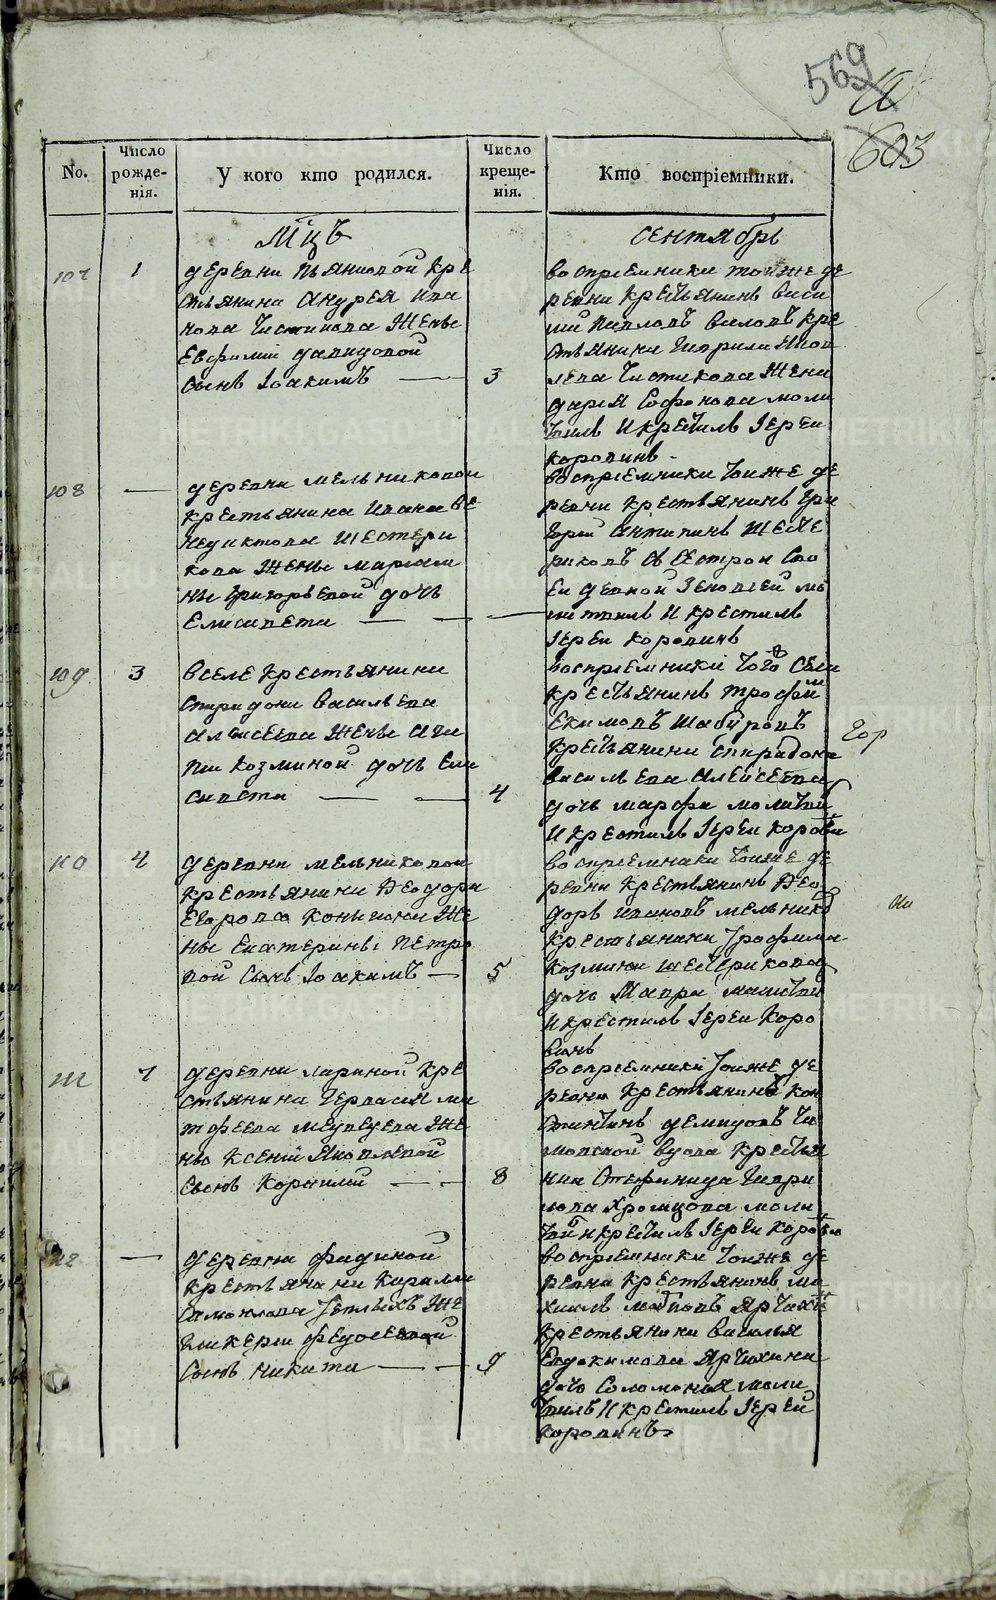 569
603
No.
Число рожде-нія.
У кого кто родился.
Число креще-нія.
Кто воспріемники.
Мцъ
сентябрь
107
1
деревни пьянковой кре
стьянина Андрея Ива
нова Чистикова Жены
Евфиміи давидовой
Сынъ Іоакимъ
3
воспріемники тойже де
ревни крестьянинъ Васи
лий Павловъ Виловъ кре
стьянина Гаврила Яков
лева Чистикова Жена
дарья Софонова моли
твилъ И крестилъ Іерей
коровинъ
108
деревни мельниковой
крестьянина Ивана Ве
недиктова Шестери
кова Жены Маріам
ны Григорьевой дочь
Елисавета
воспріемники тойже де
ревни крестьянинъ Гри
горій Антипинъ Шесте
риковъ съ сестрой сво
ей девкой Зеновіей мо
литвилъ И крестилъ
Іерей коровинъ
109
3
В селе крестьянина
Спиридона Васильева
Алексеева Жены Ага
пии Козминой дочь Ели
савета
4
Воспріемники того села
крестьянинъ Трофим
Екимовъ Шабуровъ
крестьянина Спиридона
Васильева Алексеева
дочь марфа молитвил
И крестилъ Іерей корови
Гор
110
4
деревни мельниковой
крестьянина Феодора
Егорова Конькова Же
ны Екатерины Петро
вой Сынъ Іоакимъ
5
воспріемники тойже де
ревни крестьянинъ Фео
доръ Ивановъ мельнико
крестьянина Трофима
Козмина шестерикова
дочь Мавра молитвил
И крестилъ Іерей Коро
винъ
111
7
деревни лариной кре
стьянина Герасима Ма
тфеева Медведева Же
ны Ксеніи Яковлевой
Сынъ Корнилий
8
воспріемники тойже де
ревни крестьянинъ кон
стантинъ демидовъ
вдова крестьян
ина Стефанида Гаври
лова Хромцова моли
твил И крестилъ Іерей коров
112
деревни фадиной
крестьянина Кирилла
Самойлова Теплыхъ Же
Гликерии федосеевой
Сынъ Никита
9
воспріемники тойже де
ревни крестьянинъ ми
хаилъ
крестьянина Василья
Евдокимова Ярчихина
дочь Соломонія моли
твилъ И крестилъ Іерей
коровинъ
METRIKI.GASO-URAL.RU